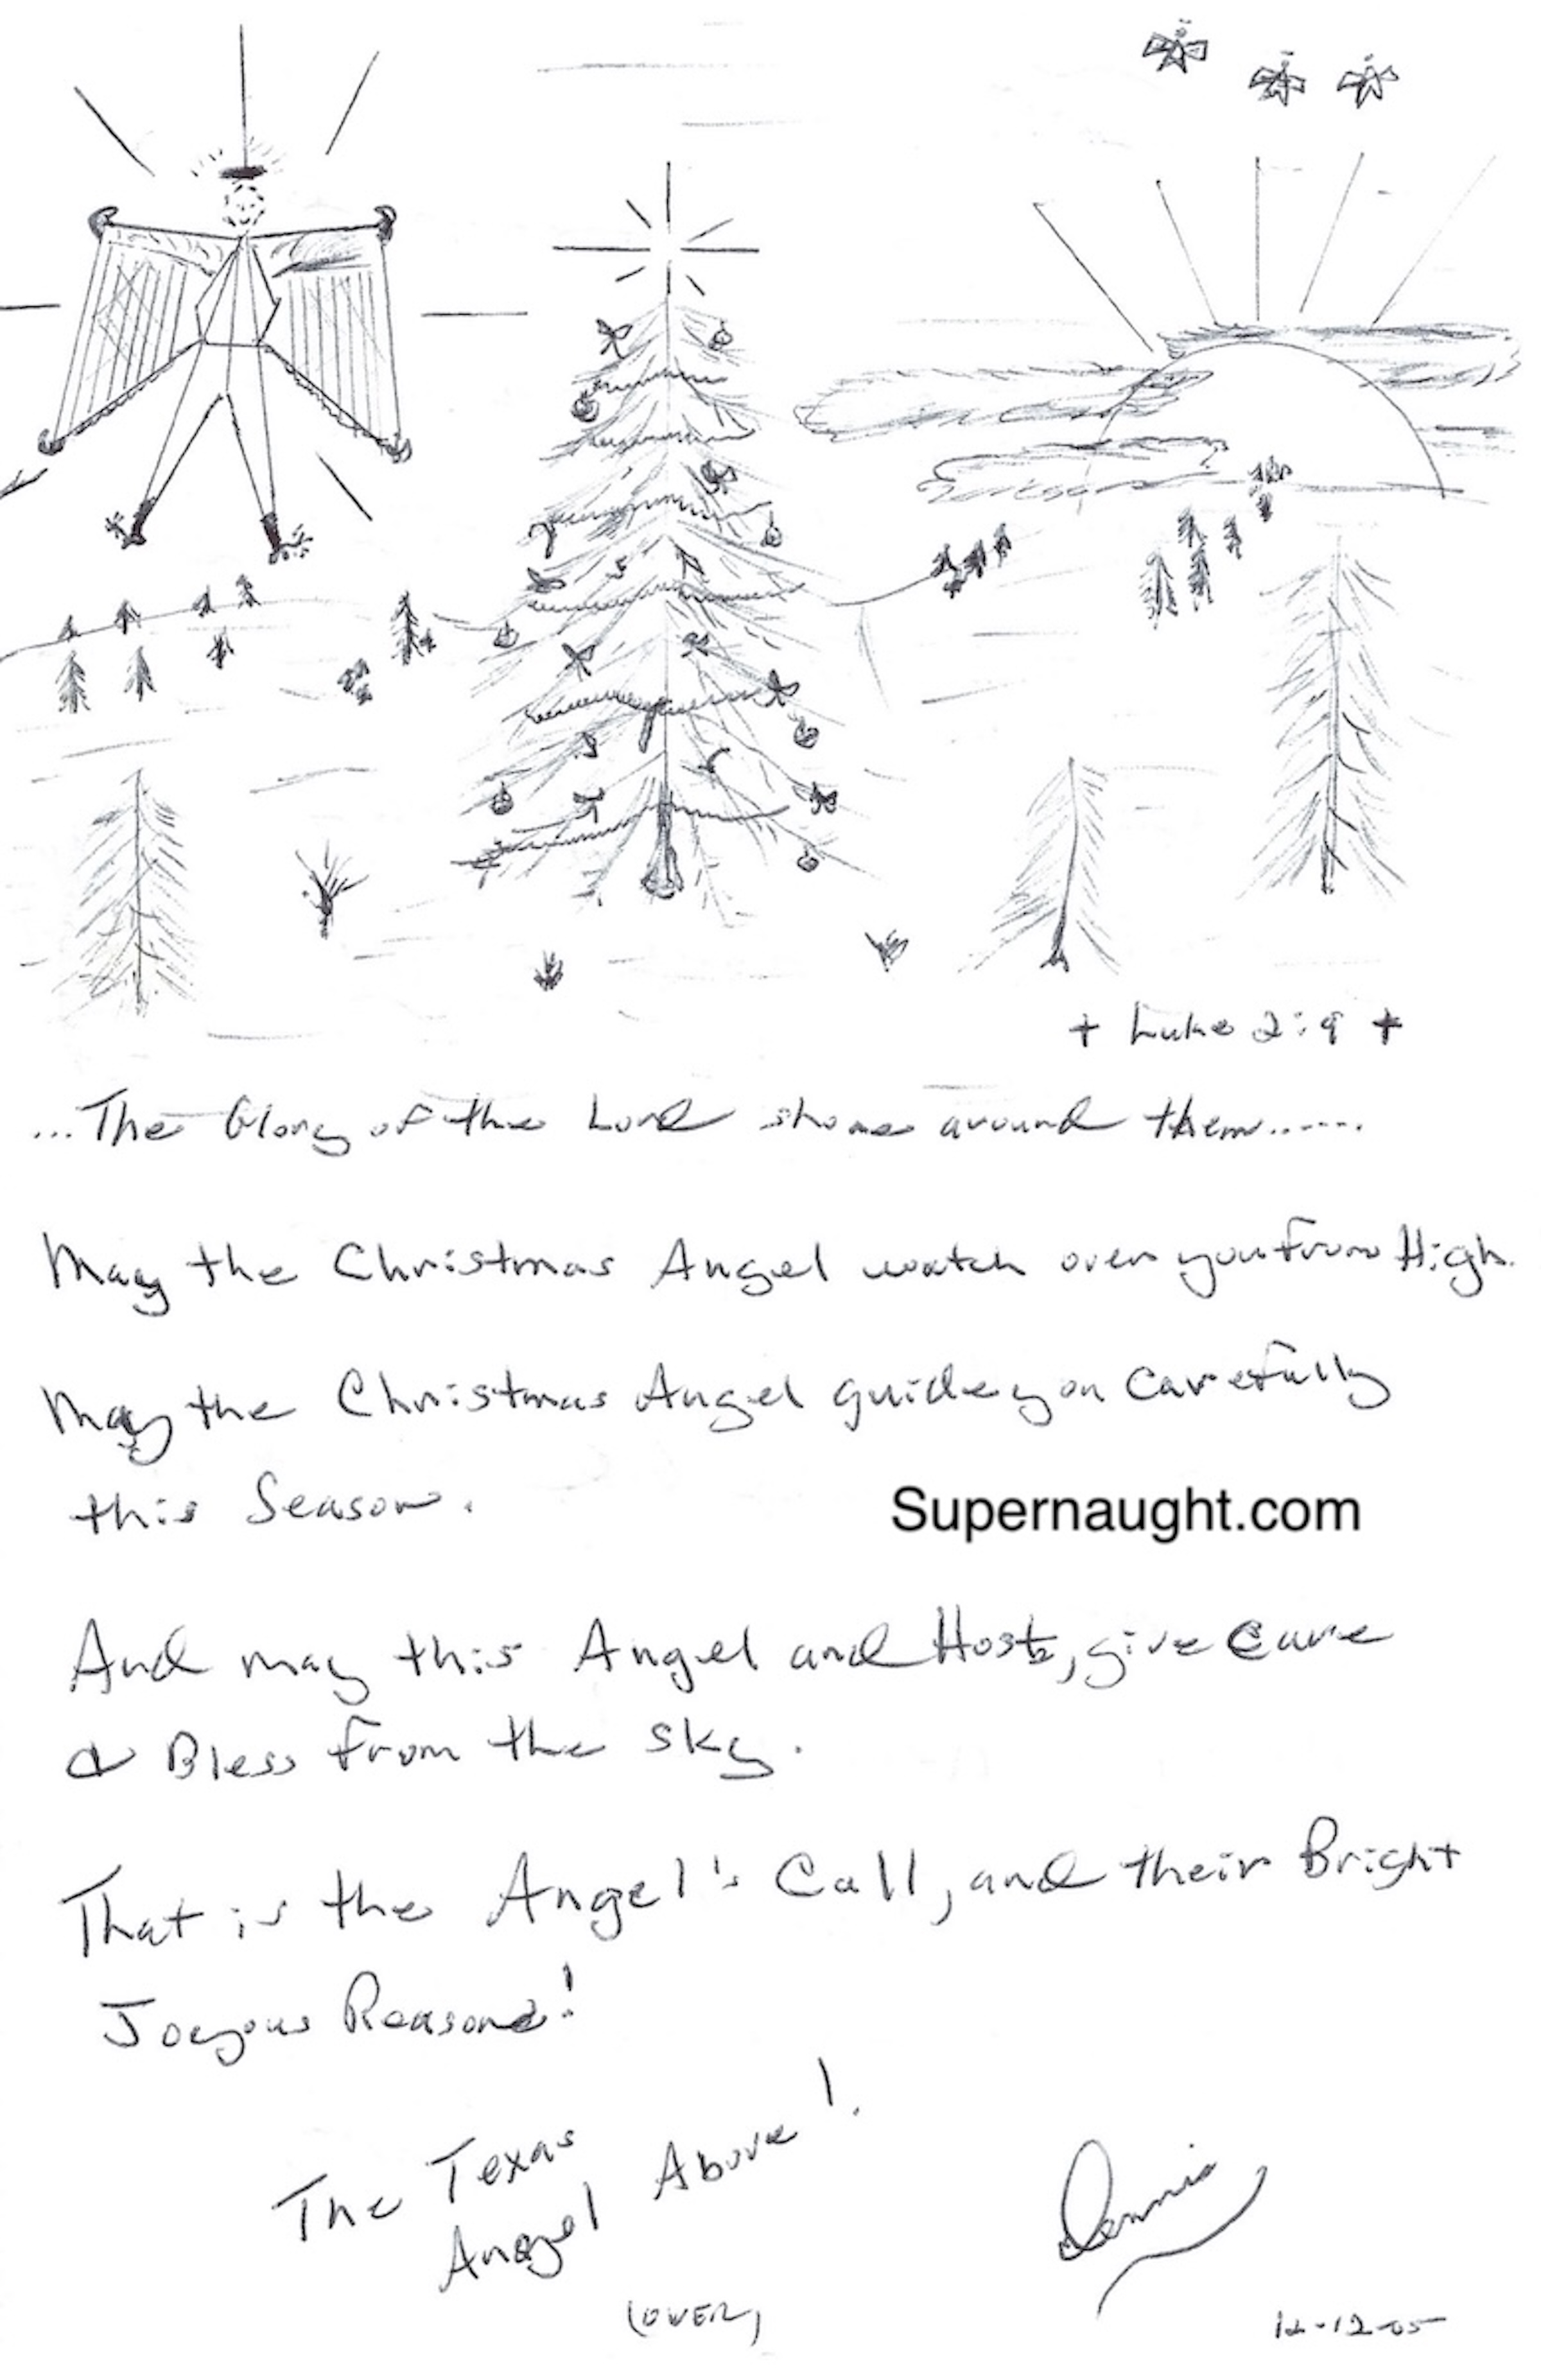 + Luke 2:9 +
...The Glory of the Lord shone around them......
May the Christmas Angel watch over you from High.
May the Christmas Angel guide you carefully
this Season.
Supernaught.com
And may this Angel and Hosts, give care
& Bless from the sky.
That is the Angel's Call, and their Bright
Joyous Reasons!
The Texas
Angel Above!
Dennis
(OVER)
12-12-05